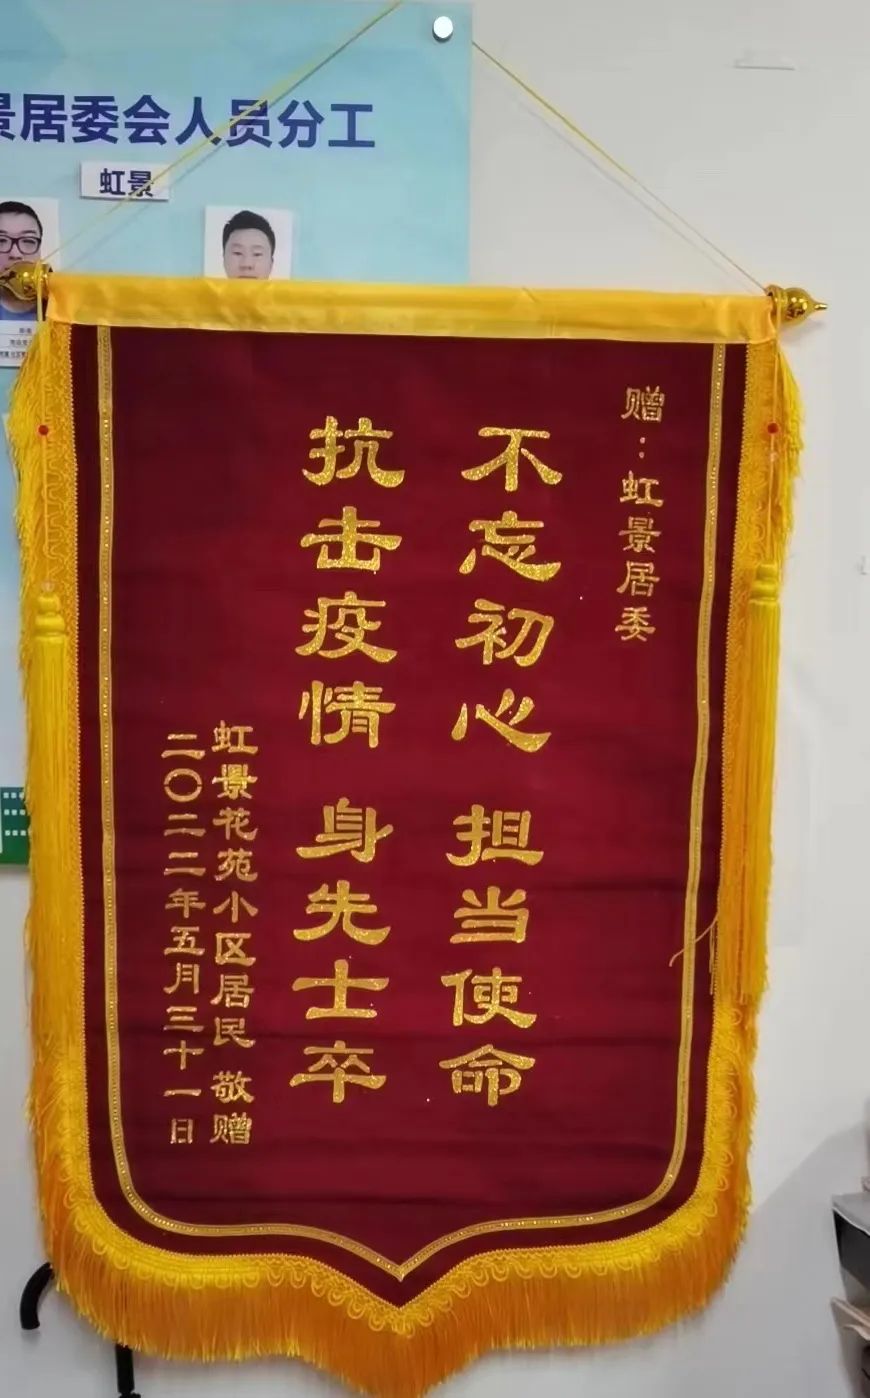 景居委会人员分工
虹景
赠：虹景居委
不忘初心 担当使命
抗击疫情 身先士卒
虹景花苑小区居民 敬赠
二〇二二年五月三十一日